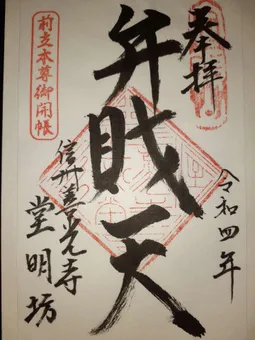 奉拝
令和四年
弁賎天
前立本尊御開帳
信州善光寺
堂明坊